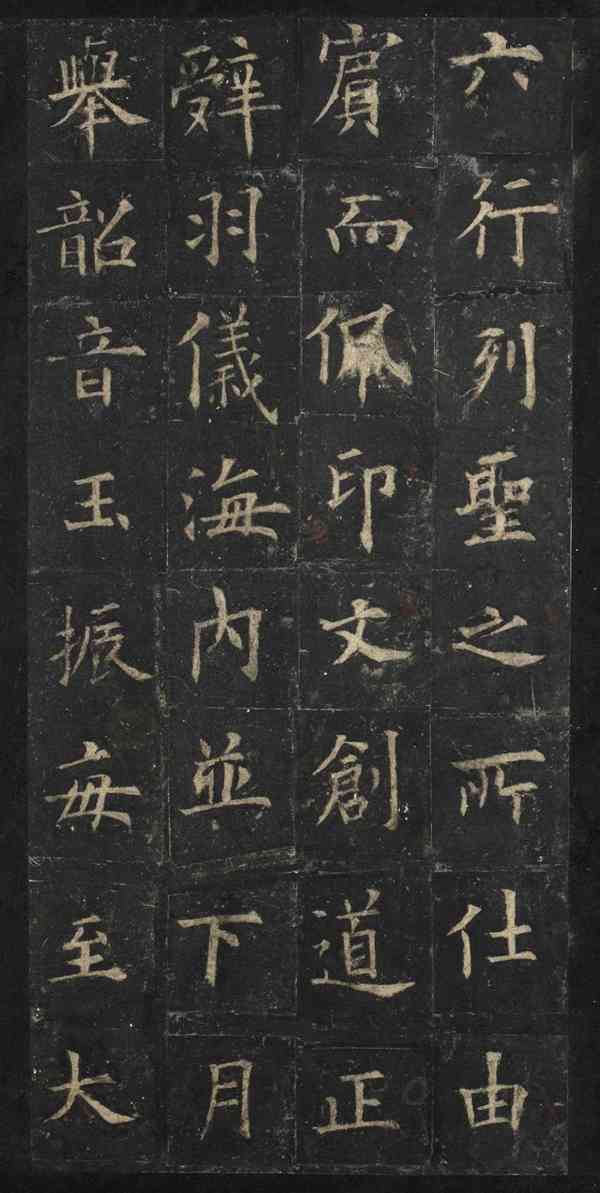 六行列聖之所仕由
賓而佩印文創道正
辤羽儀海內並下月
舉韶音玉振每至大